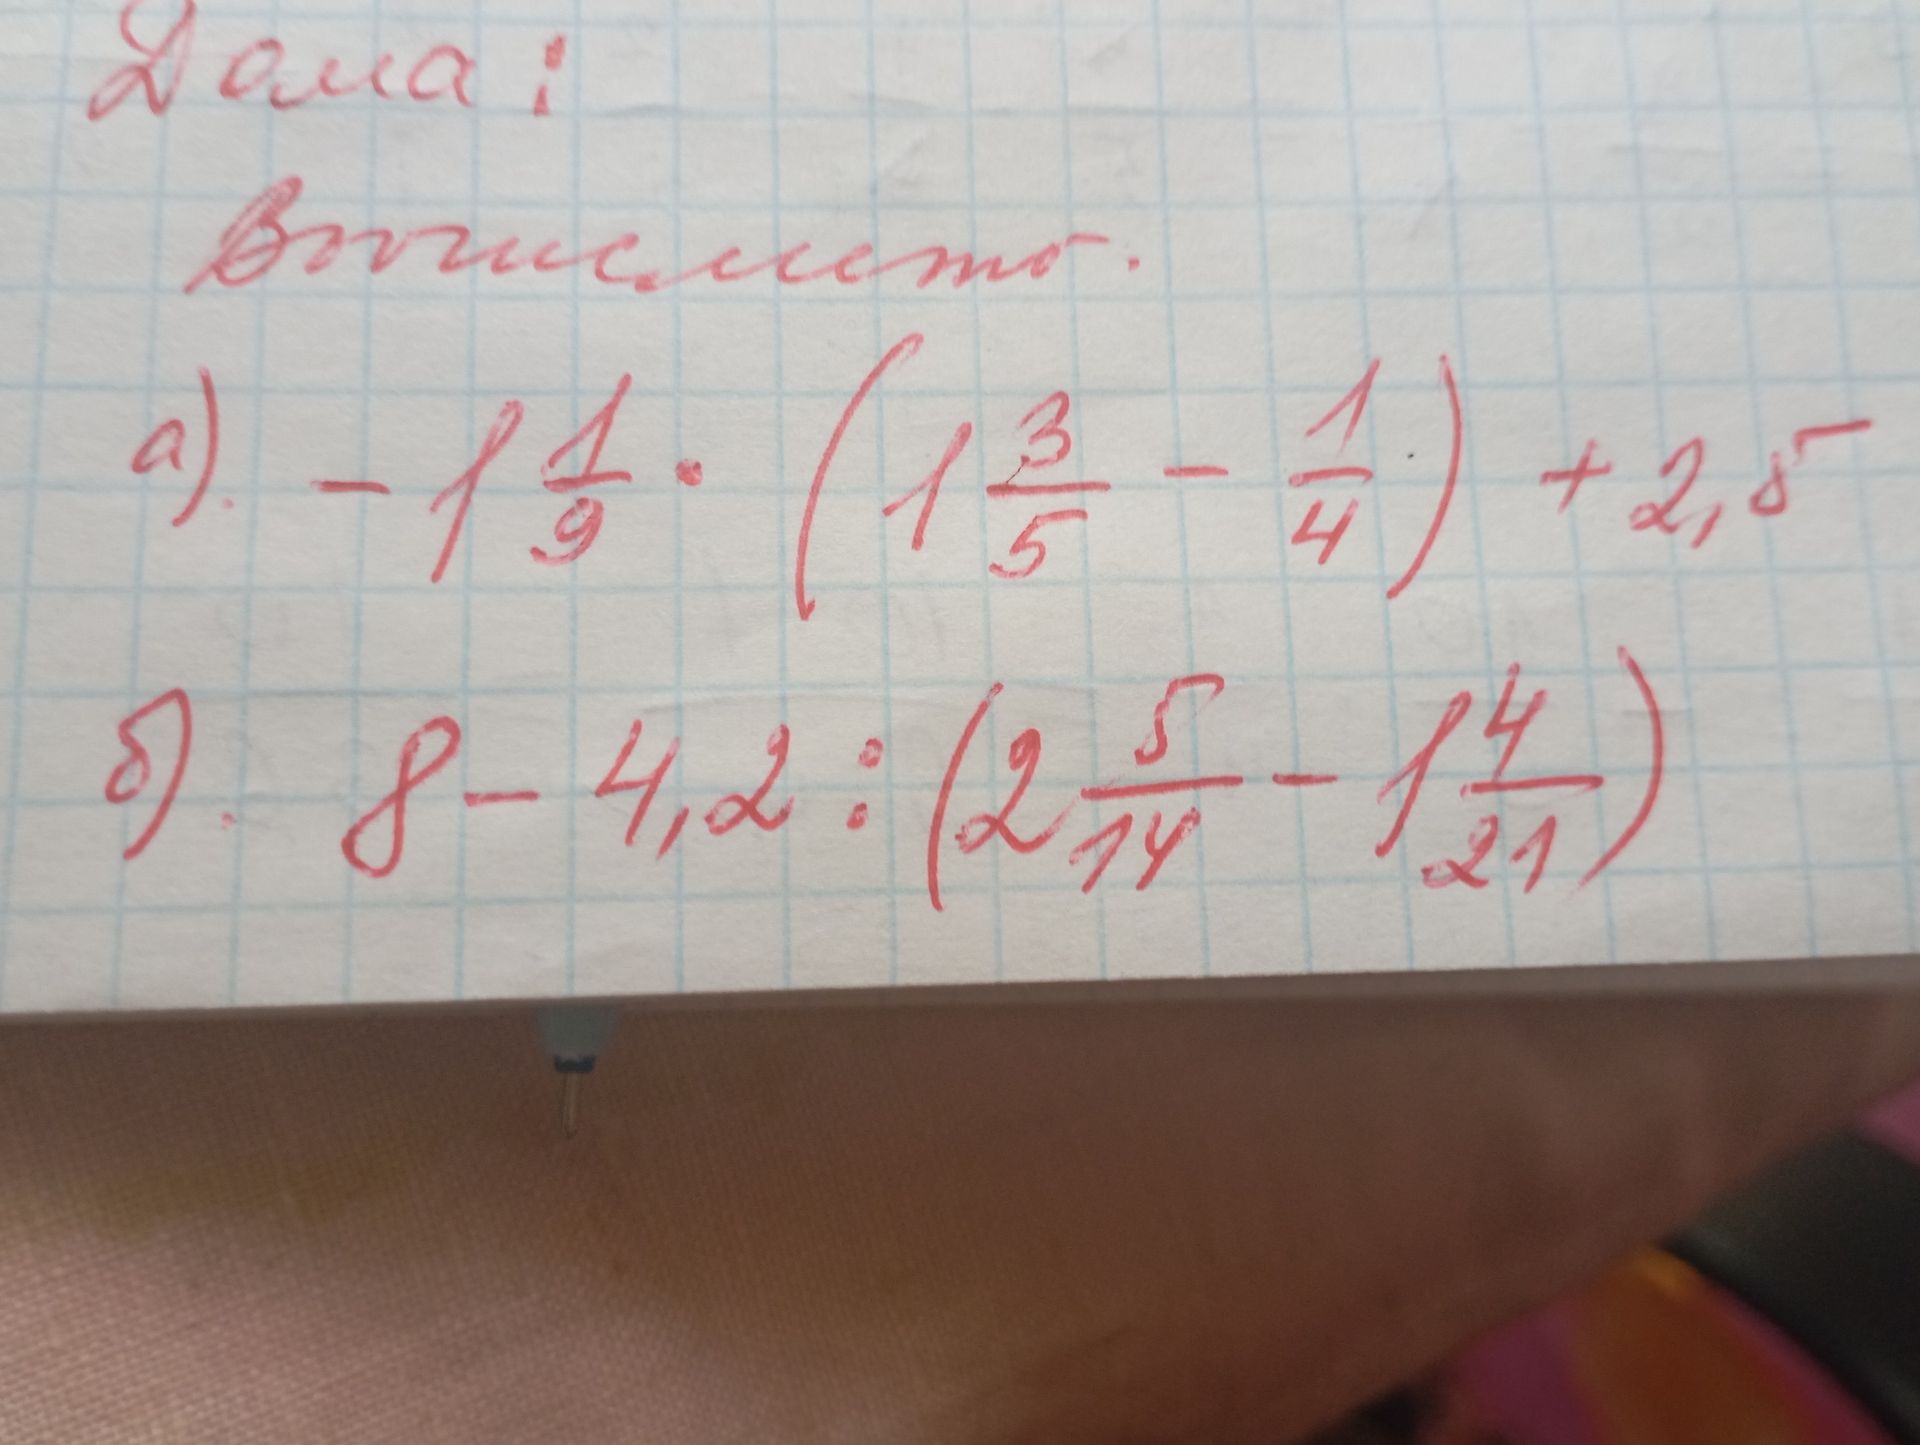 Дома:
Вычислить.
а). - 1 1/9 · (1 3/5 - 1/4) + 2,5
б). 8 - 4,2 : (2 5/14 - 1 4/21)